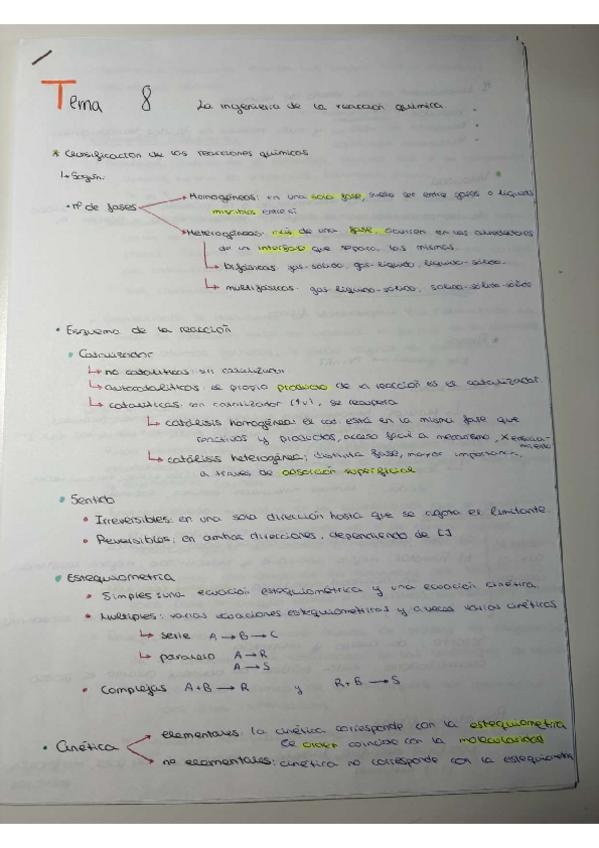 Tema 8 La ingeniería de la reacción química.
* Clasificación de las reacciones químicas
↳ Según:
• nº de fases → Homogéneas: en una sola fase, suele ser entre gases o líquidos
miscibles entre sí
→ Heterogéneas: más de una fase, ocurren en los alrededores
de un interfase que separa las mismas.
↳ bifásicas: gas-sólido, gas-líquido, líquido-sólido.
↳ multifásicas: gas-líquido-sólido, sólido-sólido-sólido
• Esquema de la reacción
• Catalizador
↳ no catalíticas: sin catalizador
↳ autocatalíticas: el propio producto de la reacción es el catalizador.
↳ catalíticas: con catalizador (↑v), se recupera
↳ catálisis homogénea: el cat. está en la misma fase que
reactivos y productos, acceso fácil a mecanismo, x
↳ catálisis heterogénea; distinta fase, mayor importancia,
a través de absorción superficial
• Sentido
• Irreversibles: en una sola dirección hasta que se agota el limitante.
• Reversibles: en ambas direcciones, dependiendo de [ ]
• Estequiometría
• Simples: una ecuación estequiométrica y una ecuación cinética.
• Múltiples: varias ecuaciones estequiométricas y a veces varias cinéticas
↳ serie A → B → C
↳ paralelo A → R
A → S
• Complejas A+B → R y R+B → S
• Cinética → elementales: la cinética corresponde con la estequiometría
el orden coincide con la molecularidad
→ no elementales: cinética no corresponde con la estequiometría